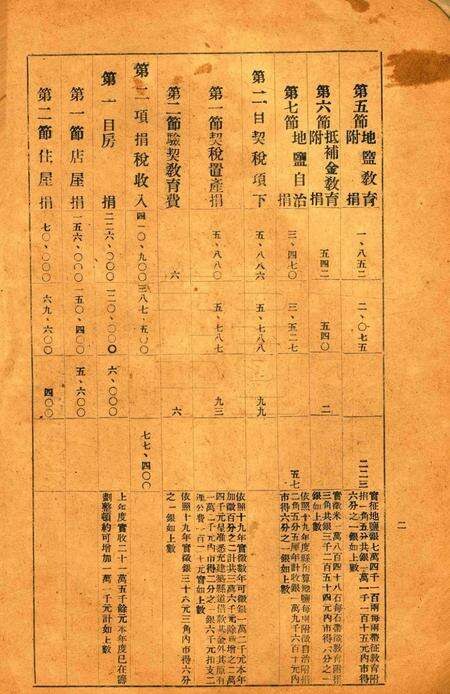 二
第五節 地鹽教育附捐 一、八五二 二、〇七五 二二三
實征地鹽銀七萬四千一百兩每兩帶征教育附
捐一角五分共銀一萬一千一百十五元內市得
六分之一銀如上數
第六節 抵補金教育附捐 五四二 五四〇 二
實徵米一萬八百四十八石每石帶徵教育附捐
三角共銀三千二百五十四元內市得六分之一
銀如上數
第七節 地鹽自治附捐 三、四七〇 三、五二七 五七
依照十九年度縣預算地鹽每兩附徵自治附捐
二角五分歷年計收銀一萬九千六百十元內
市得六分之一銀如上數
第二目 契稅項下 五、八八六 五、七八八 九九
第一節契稅置產捐 五、八八〇 五、七八七 九三
依照十九年實徵數年可徵銀一萬二千元本年
加徵百分之二計共三萬六千元除增之二萬
四千元准充建築縣道借款基金外其原有
一萬二千元內市得二分之一銀六千元扣支二
理公費一百二十元實如上數
第二節驗契教育費 六 六
依照十九年實徵銀三十六元三角內市得六分
之一銀如上數
第二項捐稅收入 四一〇、九〇〇 三八七、五〇〇 七七、四〇〇
第一目房捐 二二六、〇〇〇 二二〇、〇〇〇 六、〇〇〇
上年度實收二十一萬五千餘元本年度已在籌
劃整頓約可增加一萬一千元計如上數
第一節店屋捐 一五六、〇〇〇 一五〇、四〇〇 五、六〇〇
第二節住屋捐 七〇、〇〇〇 六九、六〇〇 四〇〇